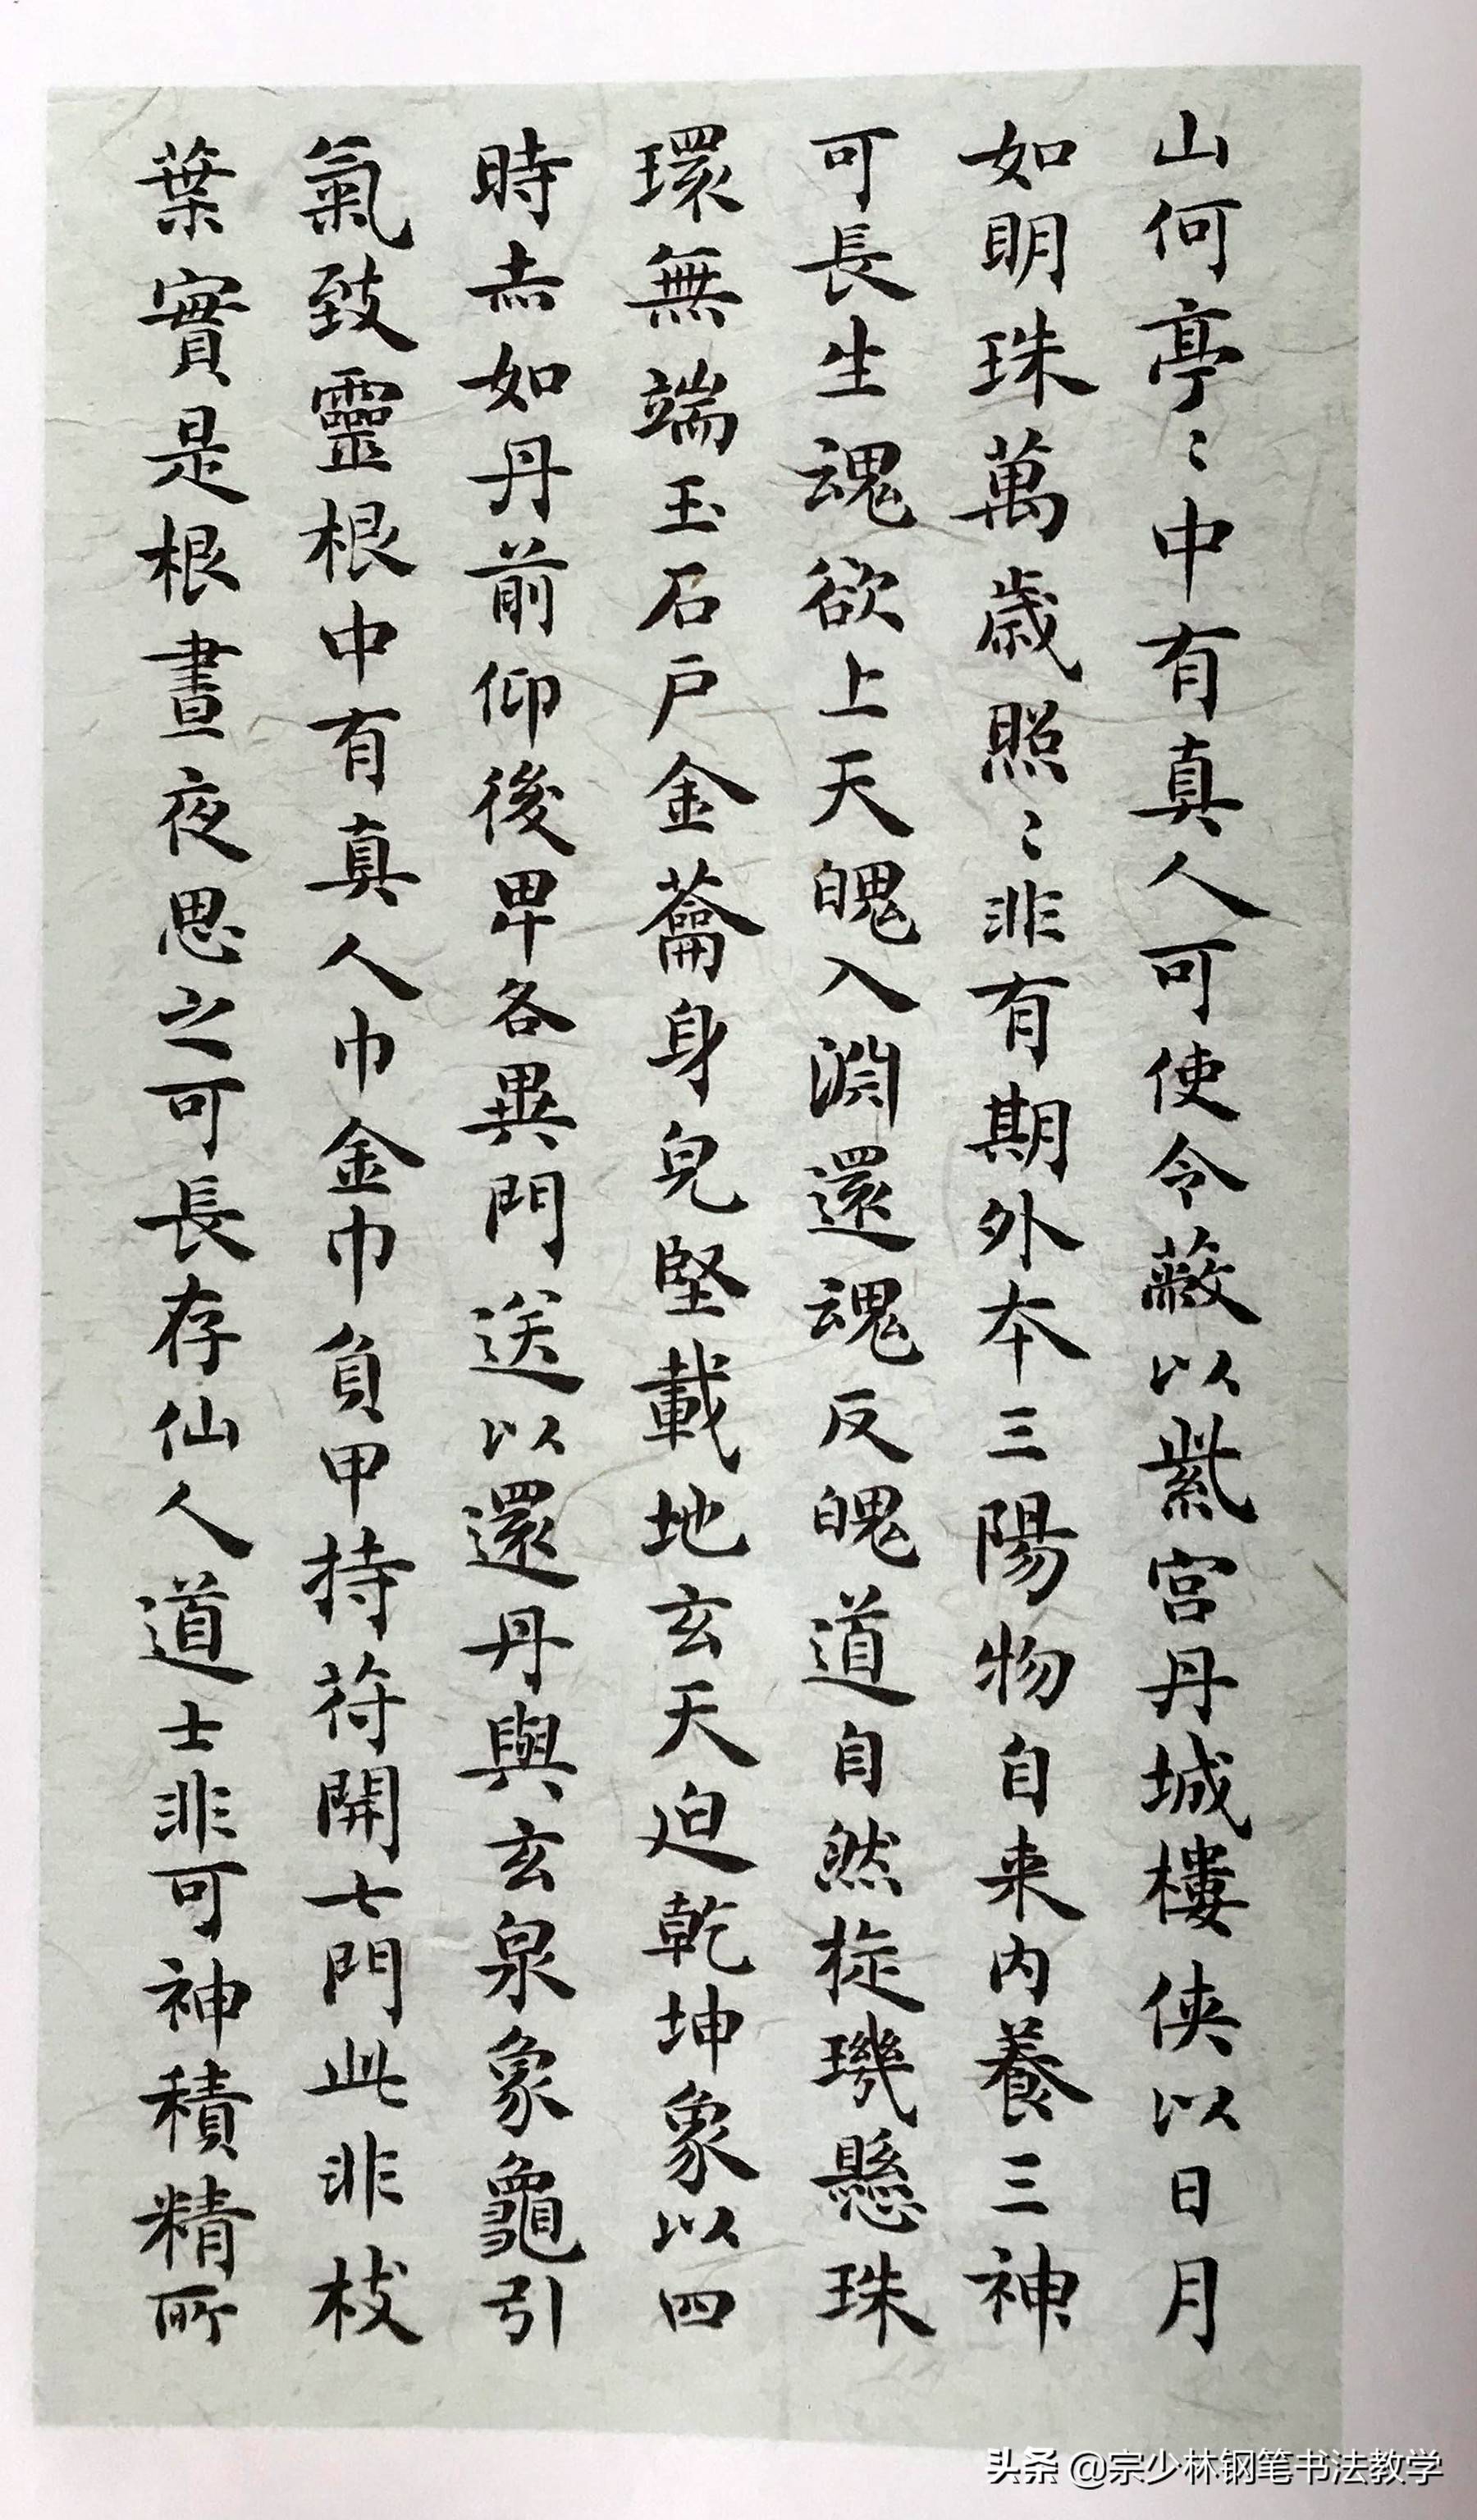 山何亭〻中有真人可使令蔽以紫宫丹城樓俠以日月
如明珠萬歲照〻非有期外本三陽物自来内養三神
可長生魂欲上天魄入淵還魂反魄道自然旋璣懸珠
環無端玉石户金籥身皃堅載地玄天迫乾坤象以四
時赤如丹前仰後卑各異門送以還丹與玄泉象龜引
氣致靈根中有真人巾金巾負甲持苻開七門此非枝
葉實是根晝夜思之可長存仙人道士非可神積精所
头条 @宗少林钢笔书法教学